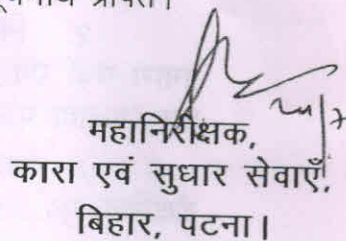 प्रेषित।
महानिरीक्षक,
कारा एवं सुधार सेवाएँ,
बिहार, पटना।